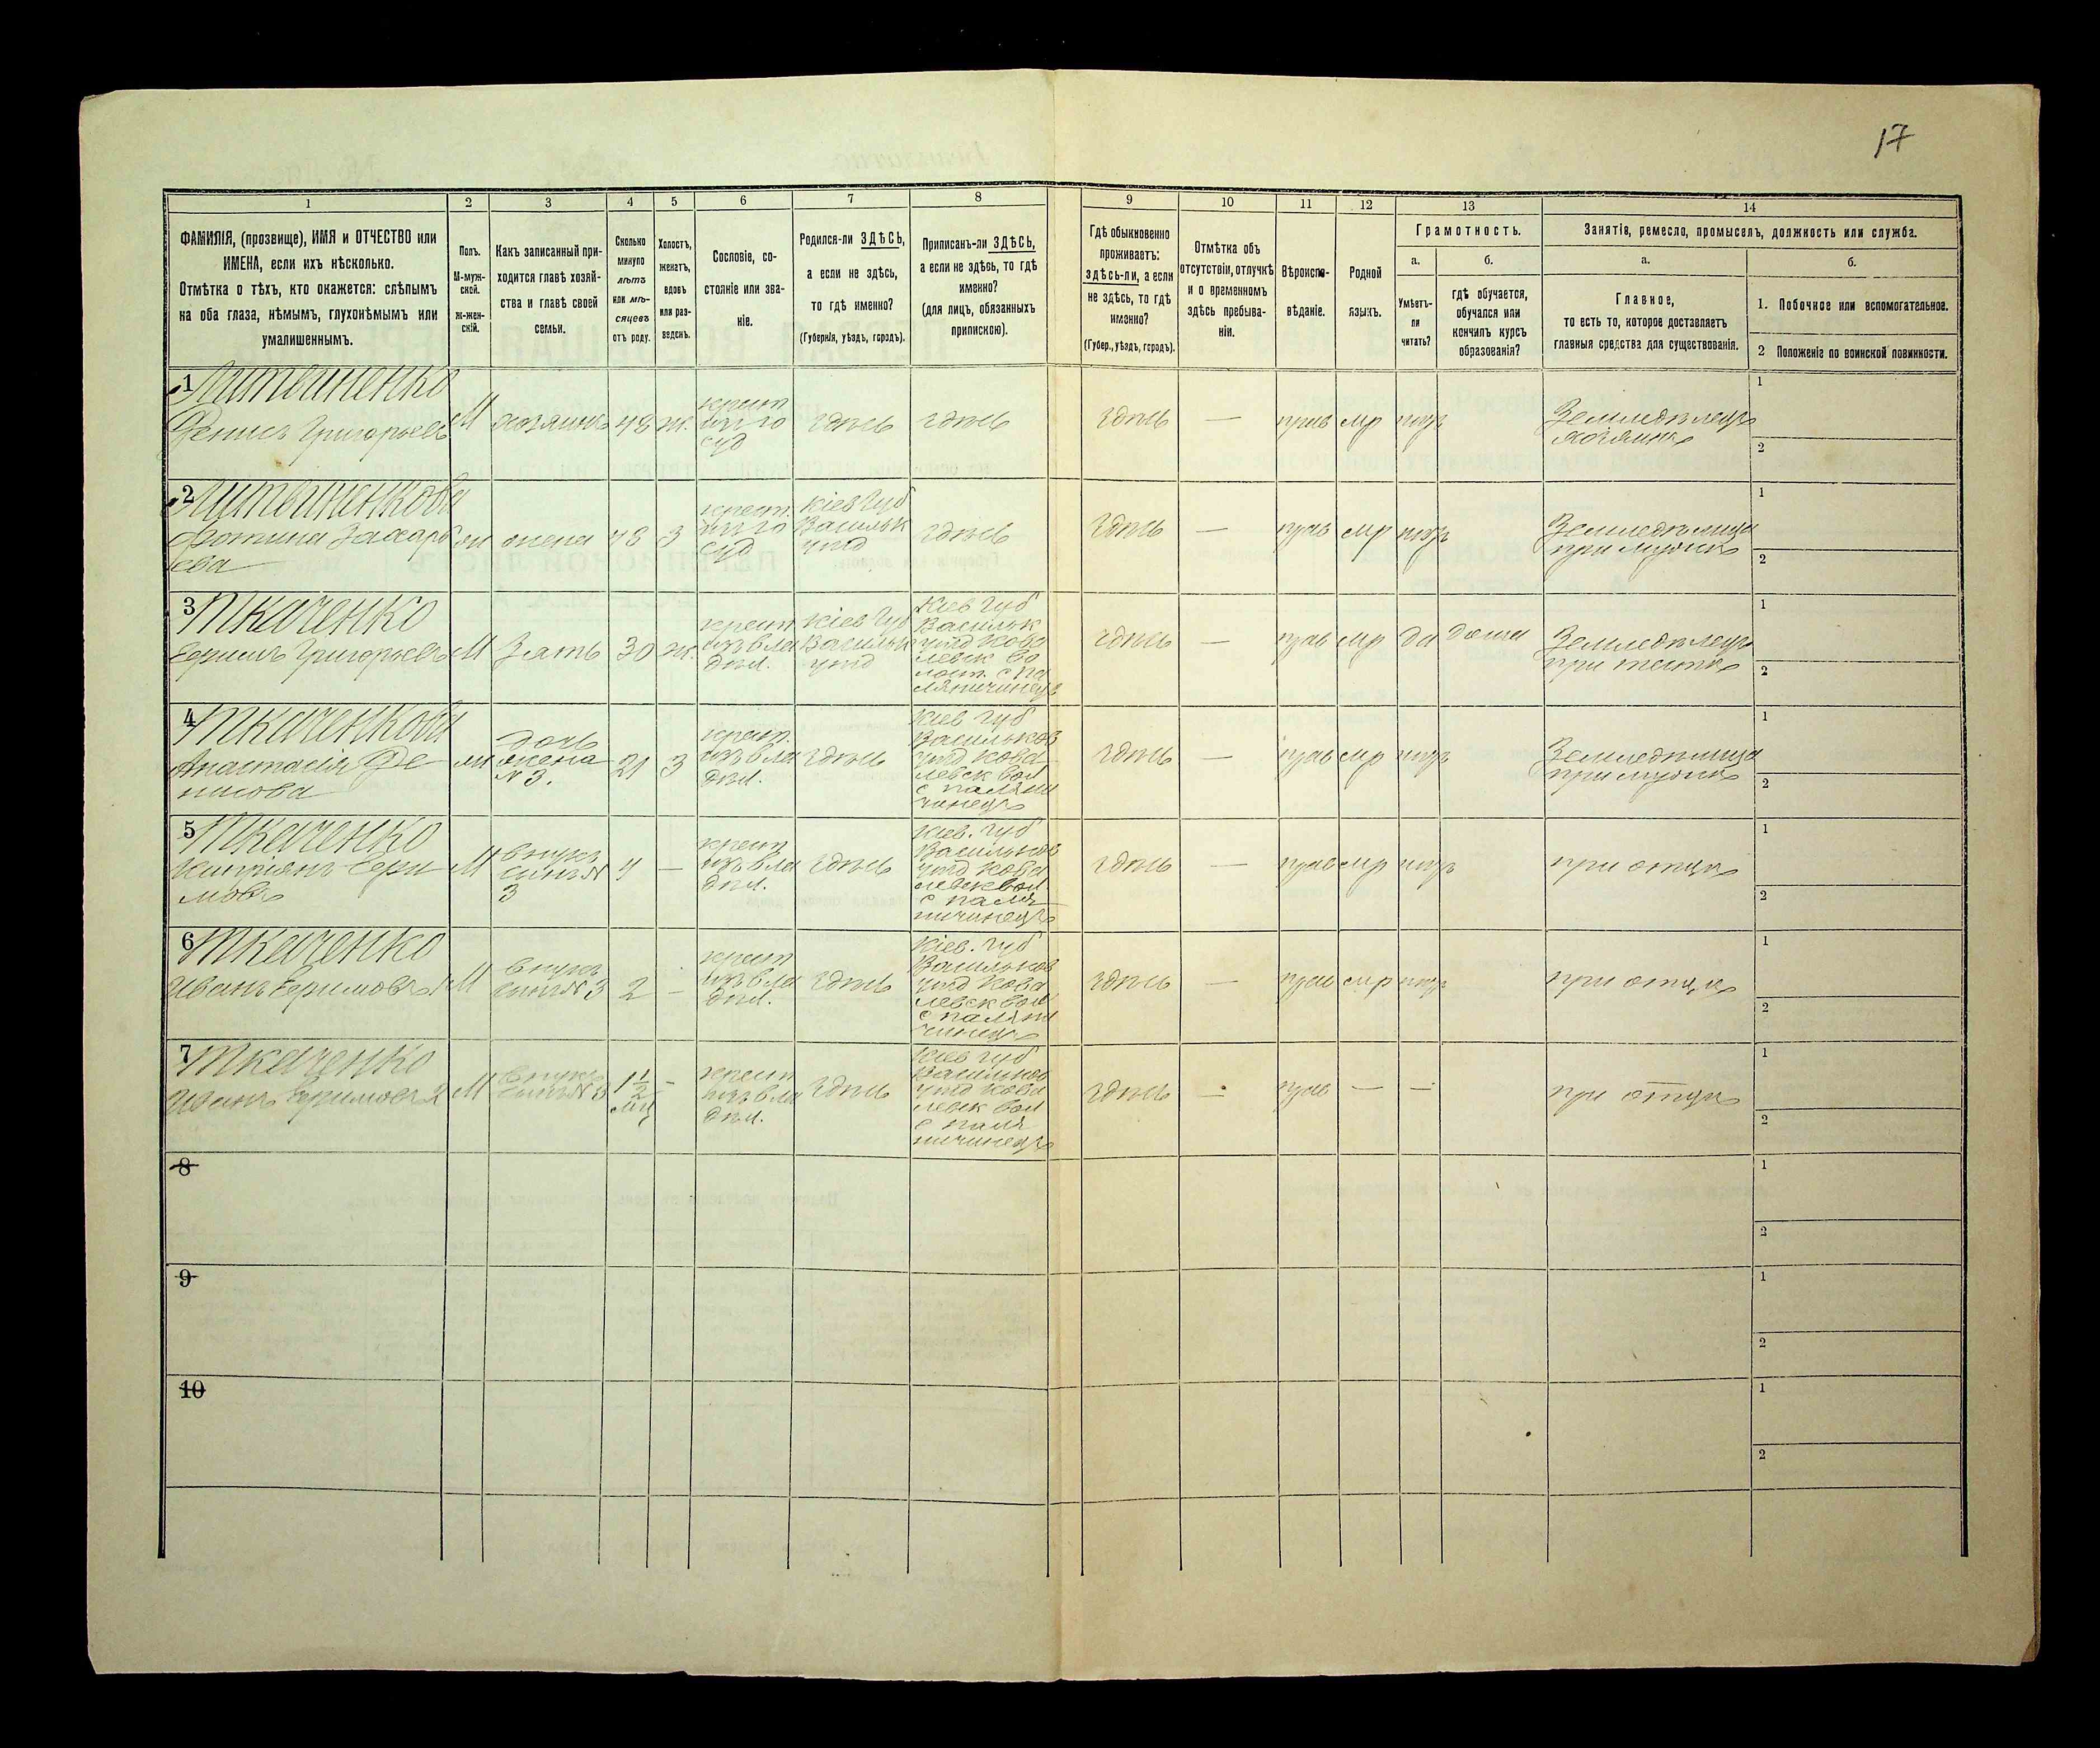 17
1
2
3
4
5
6
7
8
9
10
11
12
13
14
ФАМИЛІЯ, (прозвище), ИМЯ и ОТЧЕСТВО или
ИМЕНА, если ихъ нѣсколько.
Отмѣтка о тѣхъ, кто окажется: слѣпымъ
на оба глаза, нѣмымъ, глухонѣмымъ или
умалишеннымъ.
Полъ.
М-муж-
ской.
Ж-жен-
скій.
Какъ записанный при-
ходится главѣ хозяй-
ства и главѣ своей
семьи.
Сколько
минуло
лѣтъ
или мѣ-
сяцевъ
отъ роду.
Холостъ,
женатъ,
вдовъ
или раз-
веденъ.
Сословіе, со-
стояніе или зва-
ніе.
Родился-ли ЗДѢСЬ,
а если не здѣсь,
то гдѣ именно?
(Губернія, уѣздъ, городъ).
Приписанъ-ли ЗДѢСЬ,
а если не здѣсь, то гдѣ
именно?
(для лицъ, обязанныхъ
припискою).
Гдѣ обыкновенно
проживаетъ:
здѣсь-ли, а если
не здѣсь, то гдѣ
именно?
(Губер., уѣздъ, городъ).
Отмѣтка объ
отсутствіи, отлучкѣ
и о временномъ
здѣсь пребыва-
ніи.
Вѣроиспо-
вѣданіе.
Родной
языкъ.
Грамотность.
а.
Умѣетъ-
ли
читать?
б.
гдѣ обучается,
обучался или
кончилъ курсъ
образованія?
Занятіе, ремесло, промыселъ, должность или служба.
а.
Главное,
то есть то, которое доставляетъ
главныя средства для существованія.
б.
1. Побочное или вспомогательное.
2 Положеніе по воинской повинности.
1
Литвиненко
Денисъ Григорьевъ
М
хозяинъ
48
ж.
здѣсь
здѣсь
здѣсь
—
прав
мр
нѣтъ
Земледѣлецъ
хозяинъ
1
2
2
Литвиненкова
Фотина Захарь
ева
жена
48
З
Кіев Губ
Васильк
уѣзд
здѣсь
здѣсь
—
прав
мр
нѣтъ
Земледѣлица
при мужѣ
1
2
3
Ткаченко
Ефимъ Григорьевъ
М
Зять
30
ж.
крест
изъ вла
дѣл.
Кіев Губ
Васильк
уѣзд
Кіев Губ
Васильк
уѣзд Кова
левск во
лост. с Па
ляничинецъ
здѣсь
—
прав
мр
да
дома
Земледѣлецъ
при тестѣ
1
2
4
Ткаченкова
Анастасія Де
нисова
дочь
жена
№3.
21
З
крест.
изъ вла
дѣл.
здѣсь
Кіев Губ
Васильков
уѣзд Кова
левск вол
с паляни
чинецъ
здѣсь
—
прав
мр
нѣтъ
Земледѣлица
при мужѣ
1
2
5
Ткаченко
Кипріянъ Ефи
мовъ
М
внукъ
сынъ №
3
4
—
крест
изъ вла
дѣл.
здѣсь
Кіев. Губ
Васильков
уѣзд Кова
левск вол
с паля
ничинецъ
здѣсь
—
прав
мр
нѣтъ
при отцѣ
1
2
6
Ткаченко
Иванъ Ефимовъ 1
М
внукъ
сынъ №3
2
—
крест
изъ вла
дѣл.
здѣсь
Кіев. Губ
Васильков
уѣзд Кова
левск вол
с паляни
чинецъ
здѣсь
—
прав
мр
нѣтъ
при отцѣ
1
2
7
Ткаченко
Иванъ Ефимовъ 2
М
внукъ
сынъ №3
1 1/2
мц
—
крест
изъ вла
дѣл.
здѣсь
Кіев Губ
Васильков
уѣзд Кова
левск вол
с паля
ничинецъ
здѣсь
—
прав
—
—
при отцѣ
1
2
8
1
2
9
1
2
10
1
2